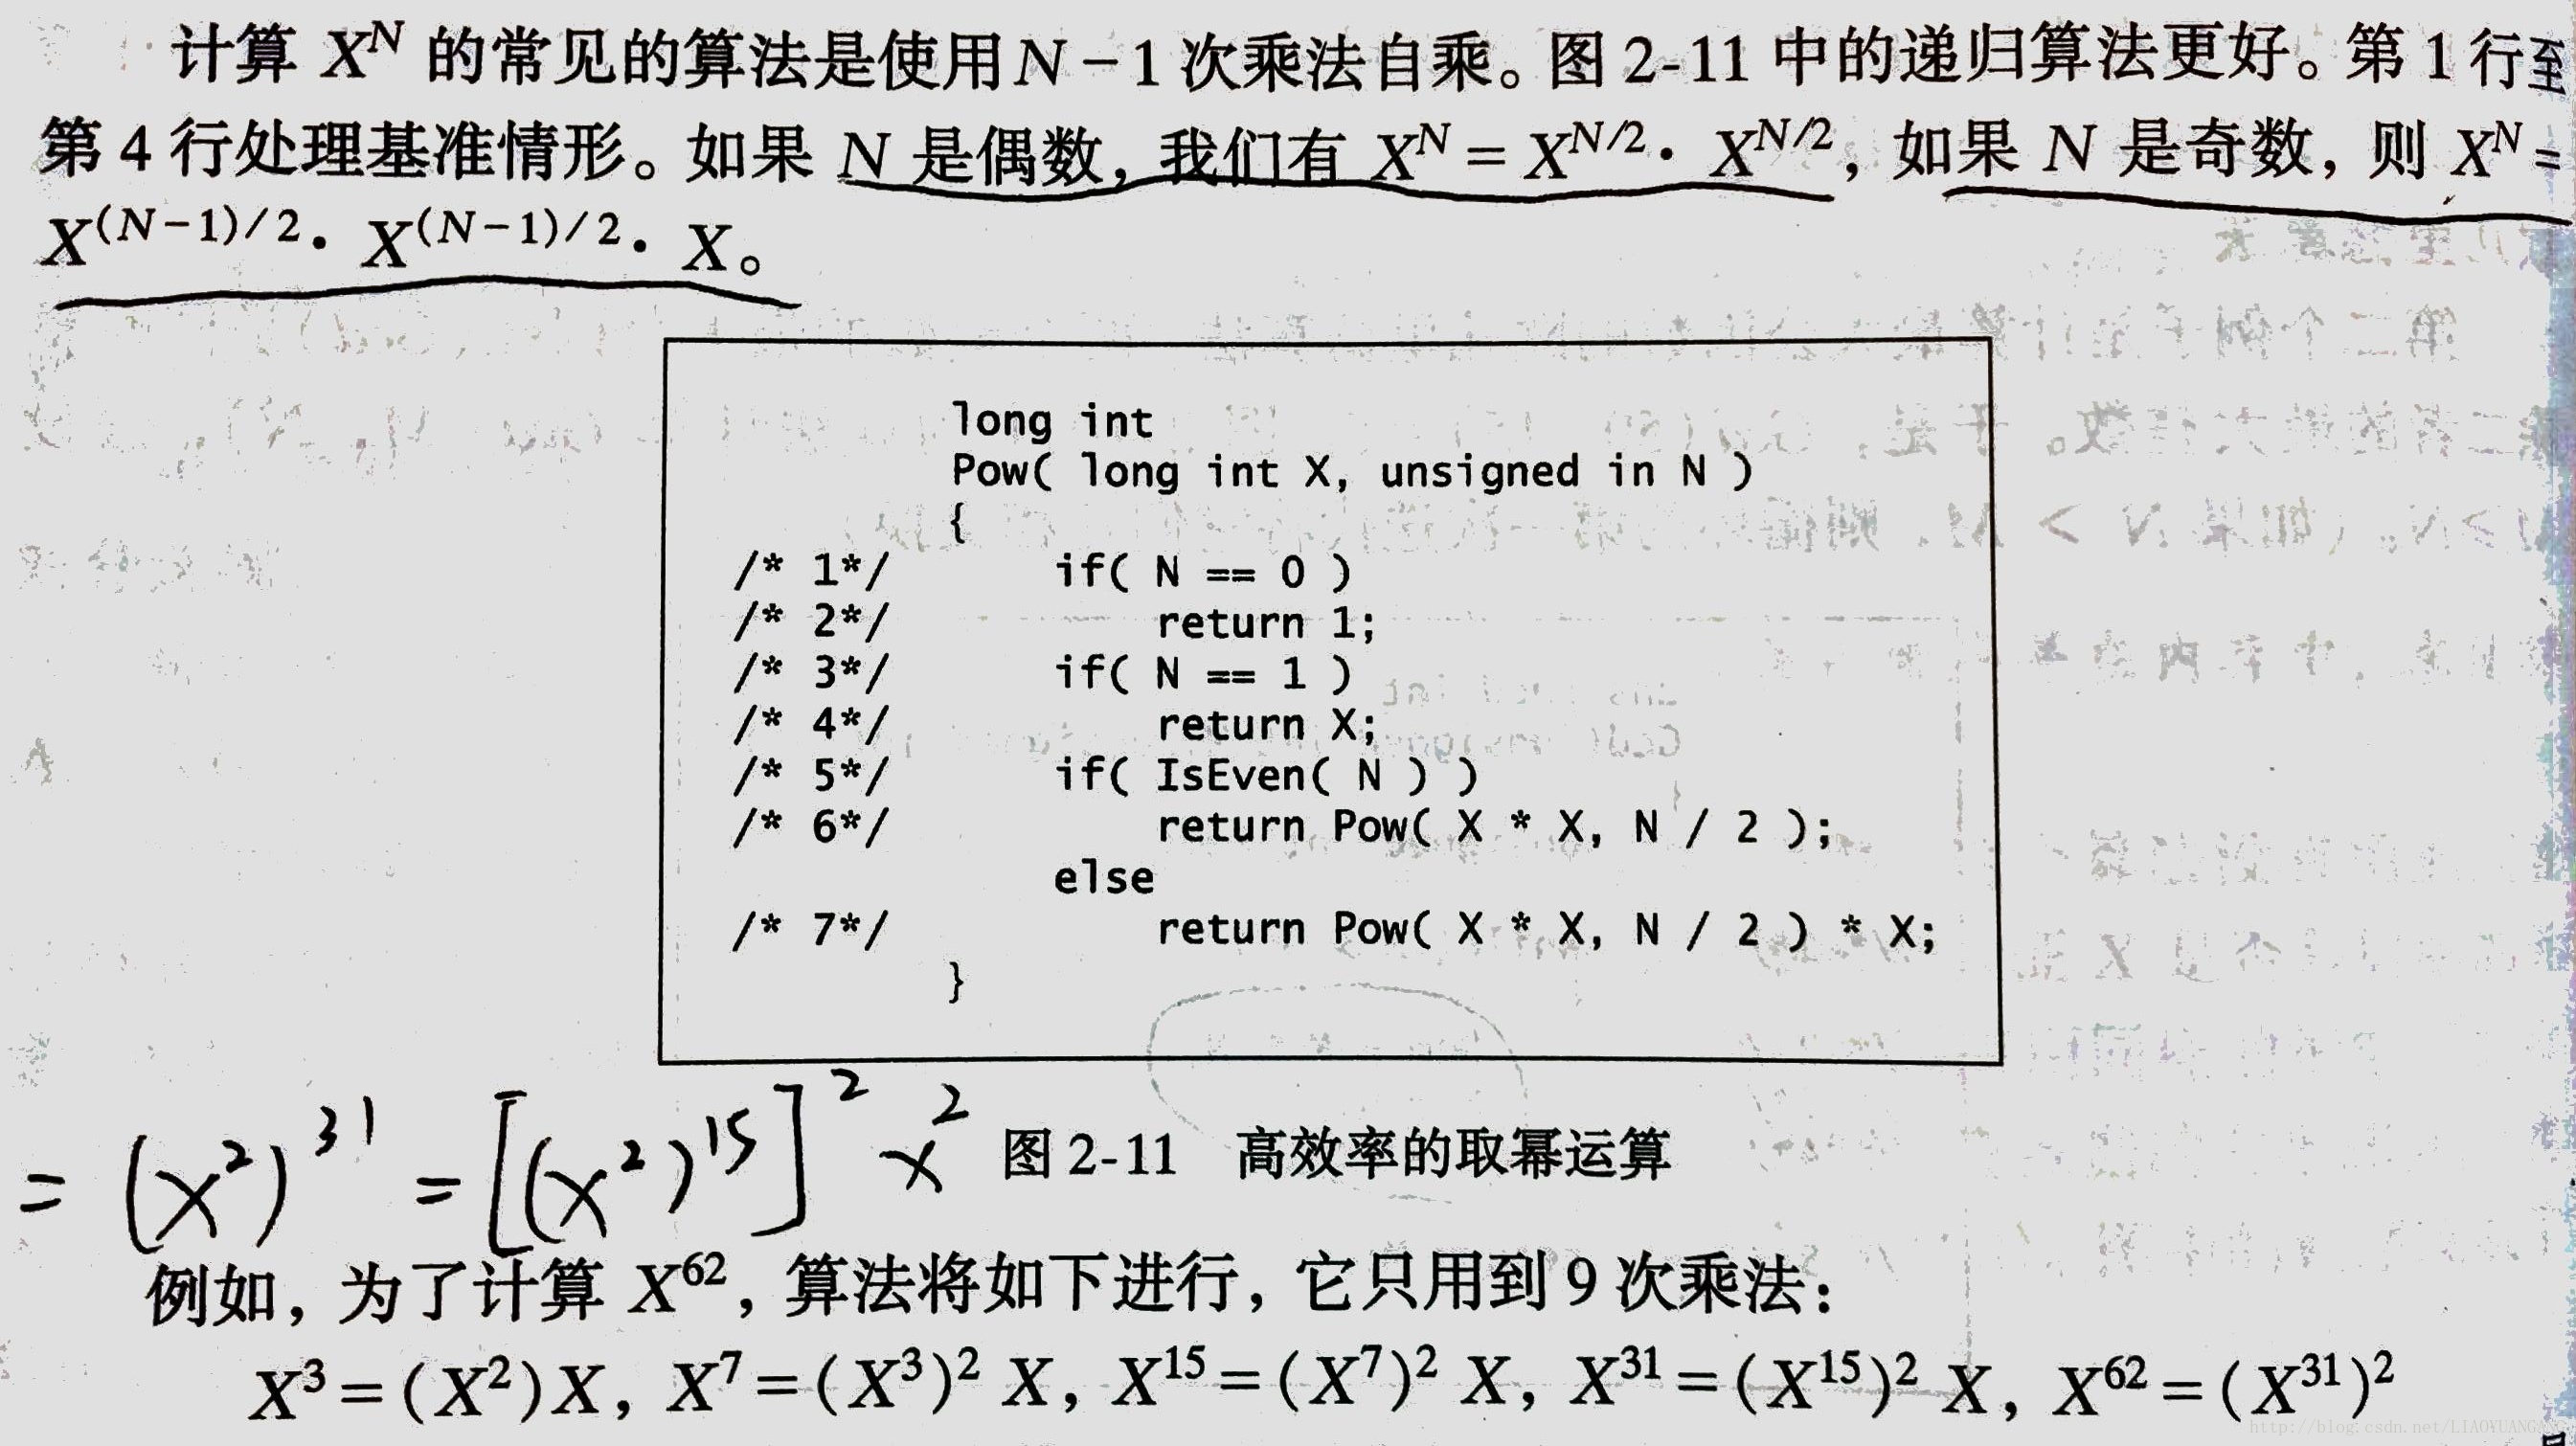 计算 X^N 的常见的算法是使用 N－1 次乘法自乘。图 2-11 中的递归算法更好。第 1 行至
第 4 行处理基准情形。如果 N 是偶数，我们有 X^N = X^{N/2}· X^{N/2}，如果 N 是奇数，则 X^N =
X^{(N-1)/2}· X^{(N-1)/2}· X。
long int
Pow( long int X, unsigned in N )
{
/* 1*/ if( N == 0 )
/* 2*/ return 1;
/* 3*/ if( N == 1 )
/* 4*/ return X;
/* 5*/ if( IsEven( N ) )
/* 6*/ return Pow( X * X, N / 2 );
else
/* 7*/ return Pow( X * X, N / 2 ) * X;
}
= (x^2)^31 = [(x^2)^15]^2 x^2
图 2-11 高效率的取幂运算
例如，为了计算 X^62，算法将如下进行，它只用到 9 次乘法：
X^3 = (X^2)X，X^7 = (X^3)^2 X，X^15 = (X^7)^2 X，X^31 = (X^15)^2 X，X^62 = (X^31)^2